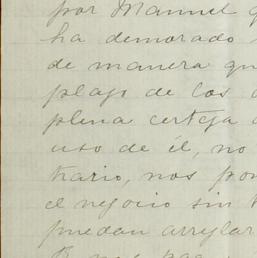 por Manuel q
ha demorado
de manera qu
plazo de los
plena certeza
uso de él, no
trario, nos pon
el negocio sin t
puedan arreglar